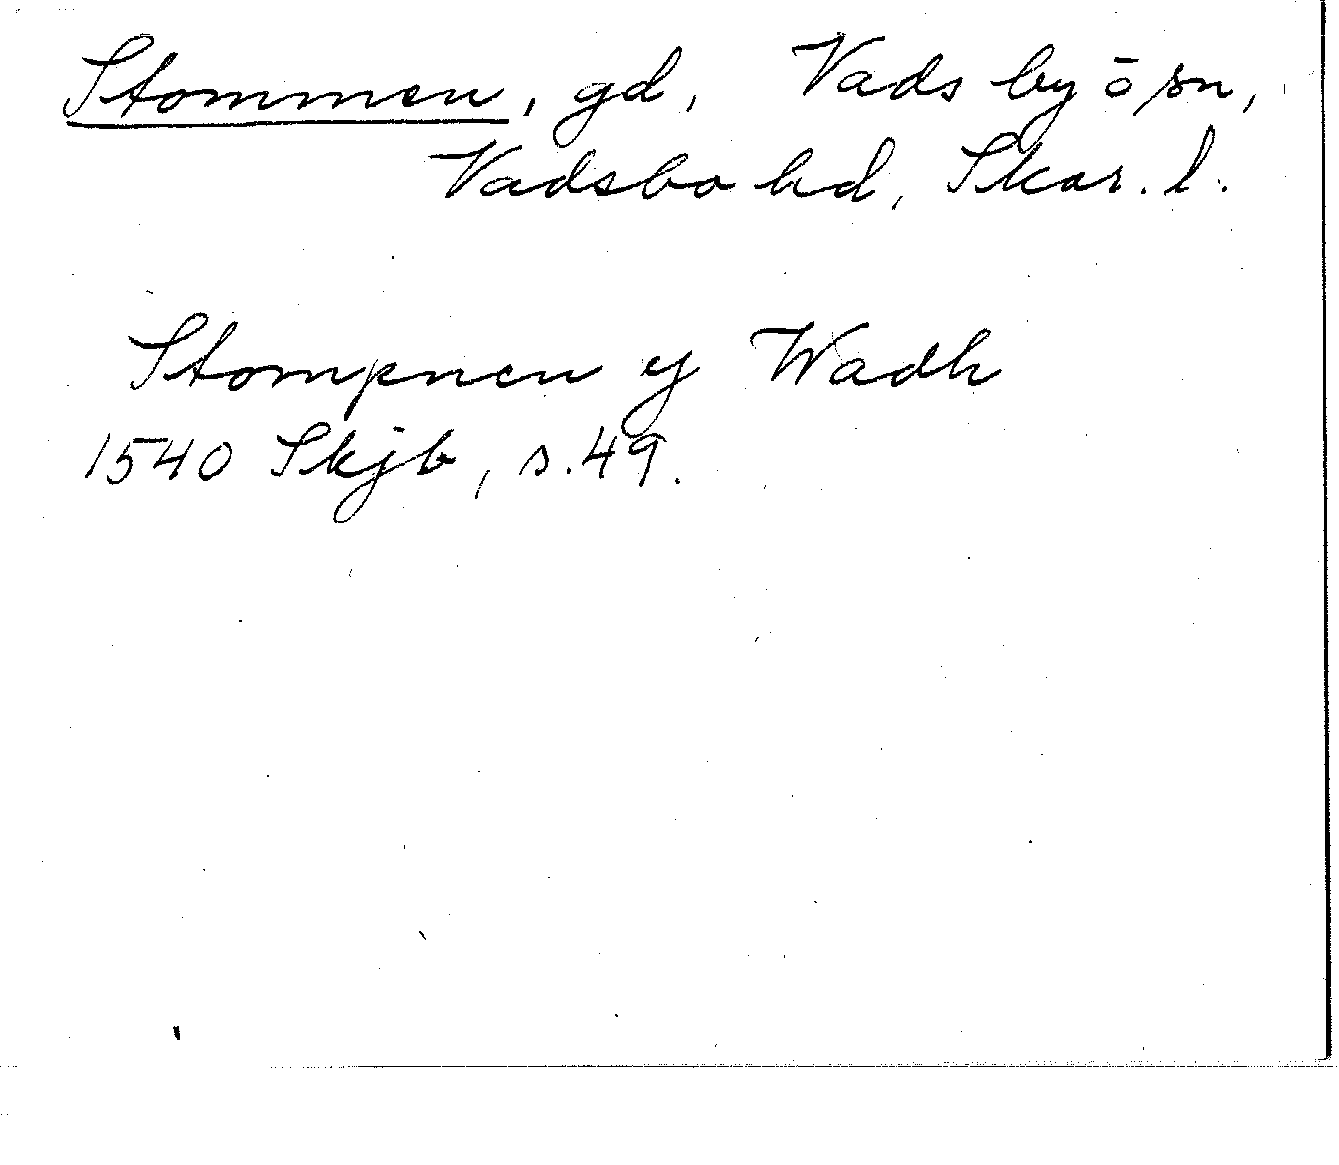 Stommen, gd, Vads by o sn,
Vadsbo hd, Skar. l.
Stompnen y Wadh
1540 Skjb, s. 49.